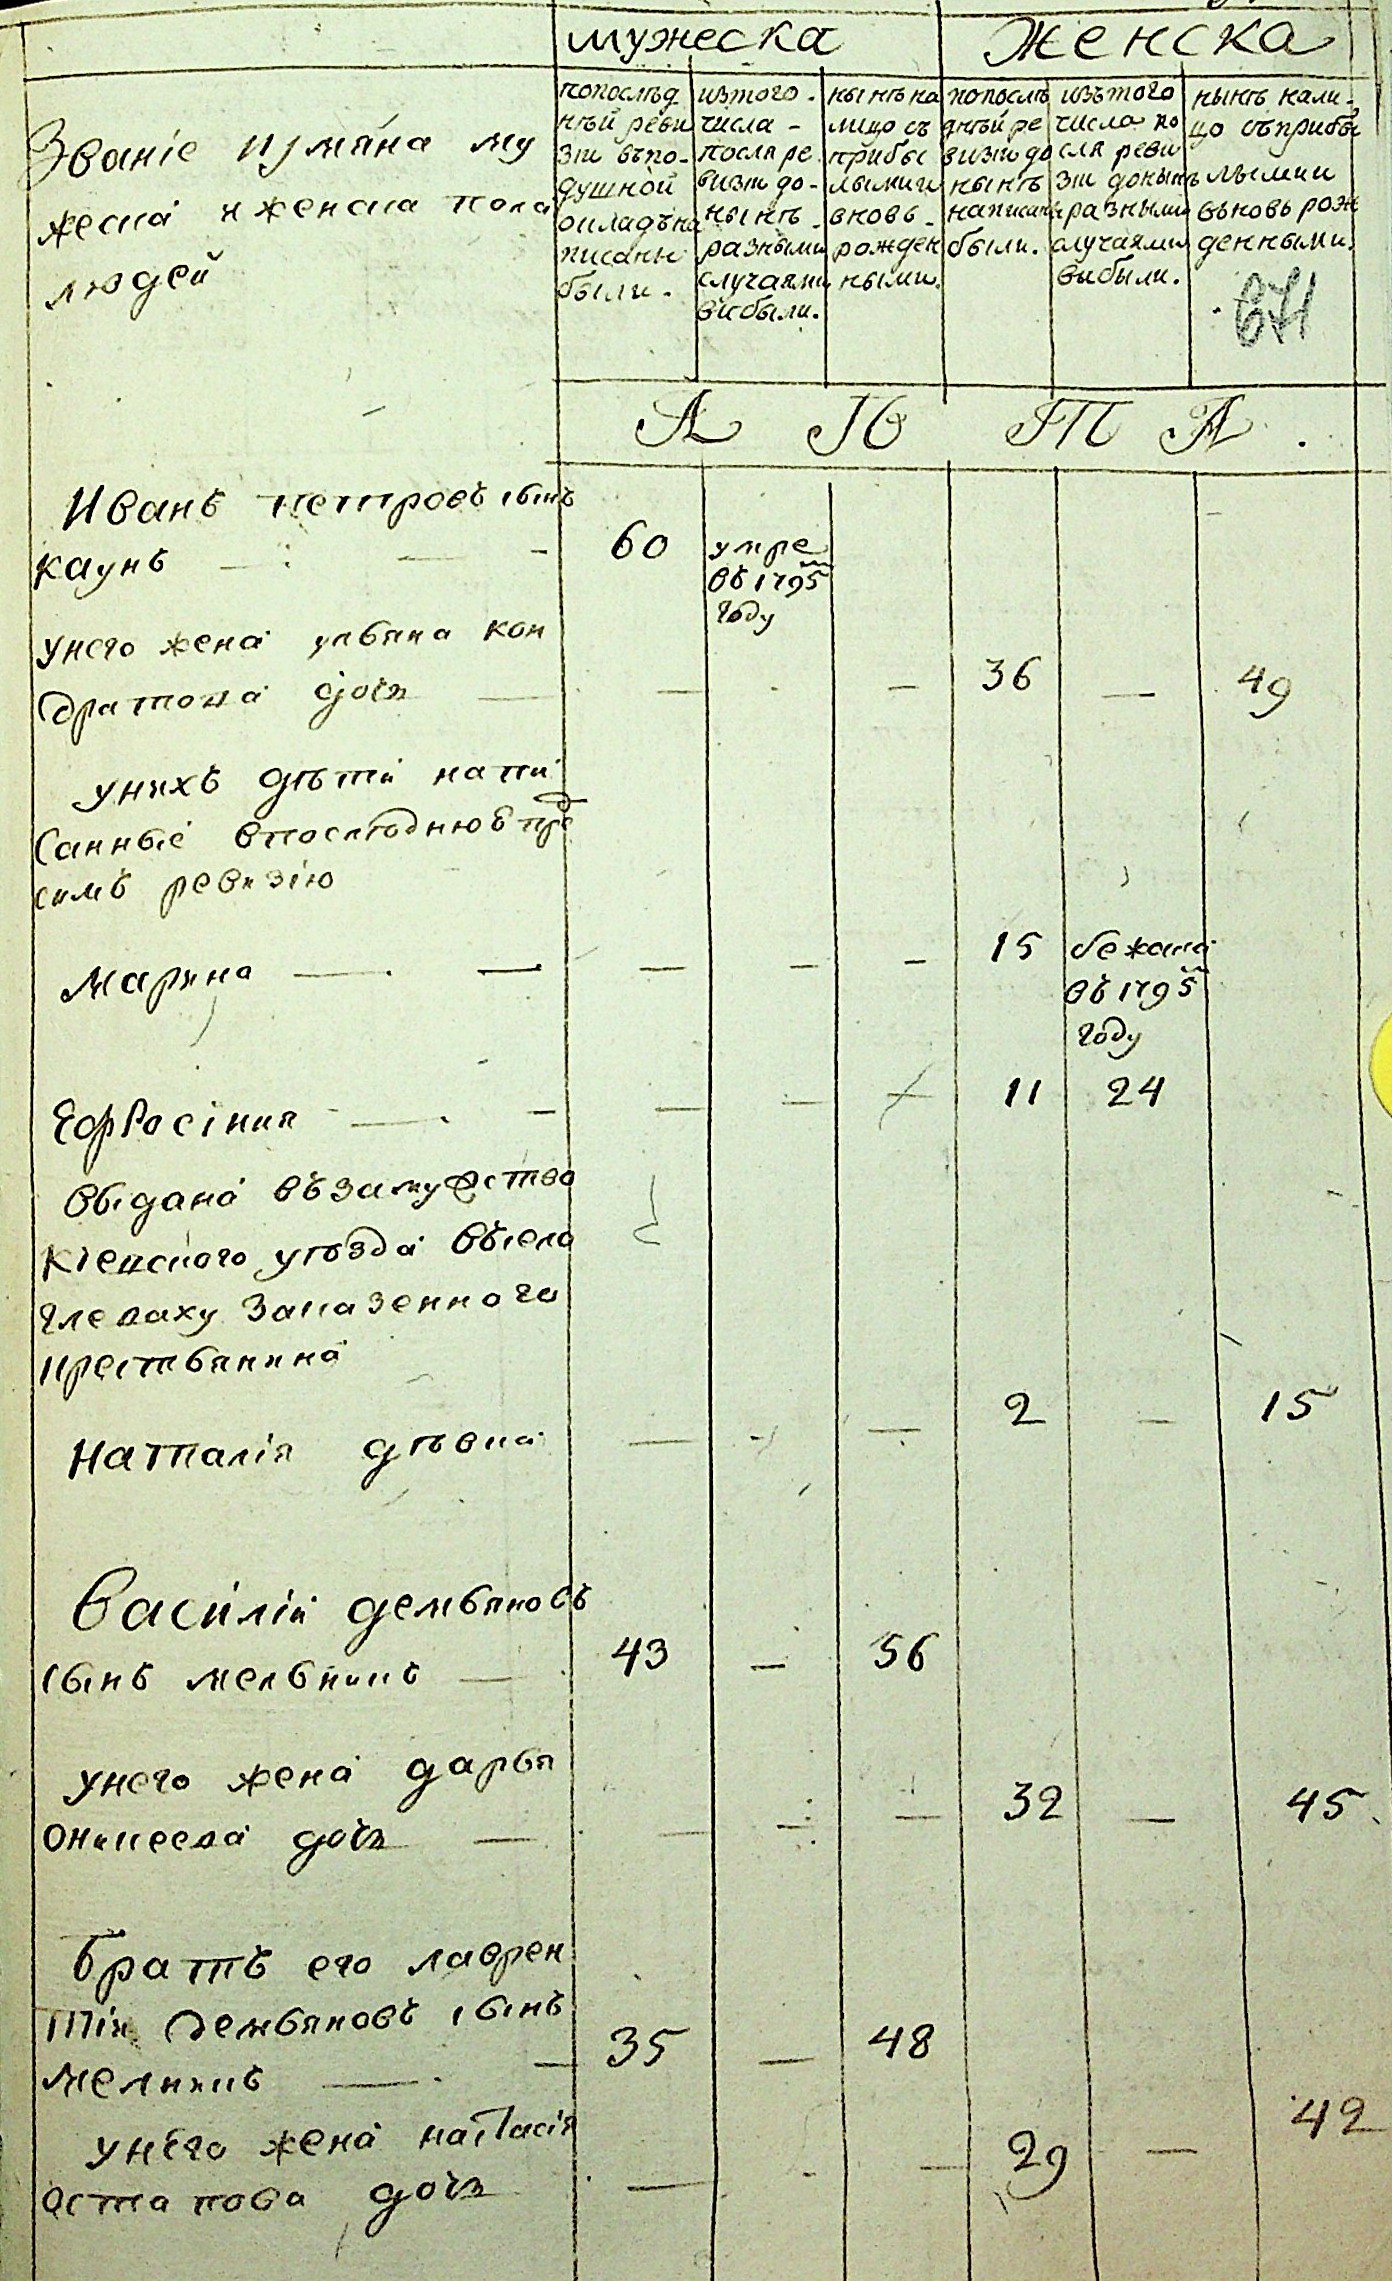 мужеска
женска
Званіе иумяна му
жеска иженска пола
людей
попослѣд
нѣй реви
зіи въпо-
душной
окладъна
писаны
были.
изтого.
числа-
посля ре
визіи до-
нынѣ
разными
случаями
выбыли.
нынѣ на
лицо съ
прибы
лыми и
вновь-
рожден
ными.
попослѣ
днѣй ре
визіи до
нынѣ
написаны
были.
изътого
числа по
сля реви
зіи донынѣ
разными
случаями
выбыли.
нынѣ нали-
цо съприбы
лыми и
вьновь рож
денными.
671
Л Ѣ Т А
Иванъ петровъ сынъ
каунъ — 60 умре
въ 1795
году
унего жена ульяна кон
дратова дочь — — — 36 — 49
унихъ дѣти напи
санные впослѣднюю пред
симъ ревизію
марина — — — — — 15 бежала
въ 1795
году
Ефросіния — — — — 11 24
выдана възамужство
кіевского уѣзда въсело
глеваху заказенного
крестьянина
Наталія дѣвка — — — 2 — 15
Василій демьяновъ
сынъ мельникъ — 43 — 56
унего жена дарья
Оникеева дочь — — — — 32 — 45
братъ его лаврен
тій демьяновъ сынъ
мелникъ — 35 — 48
унего жена настасія
остапова дочь — — 29 — 42